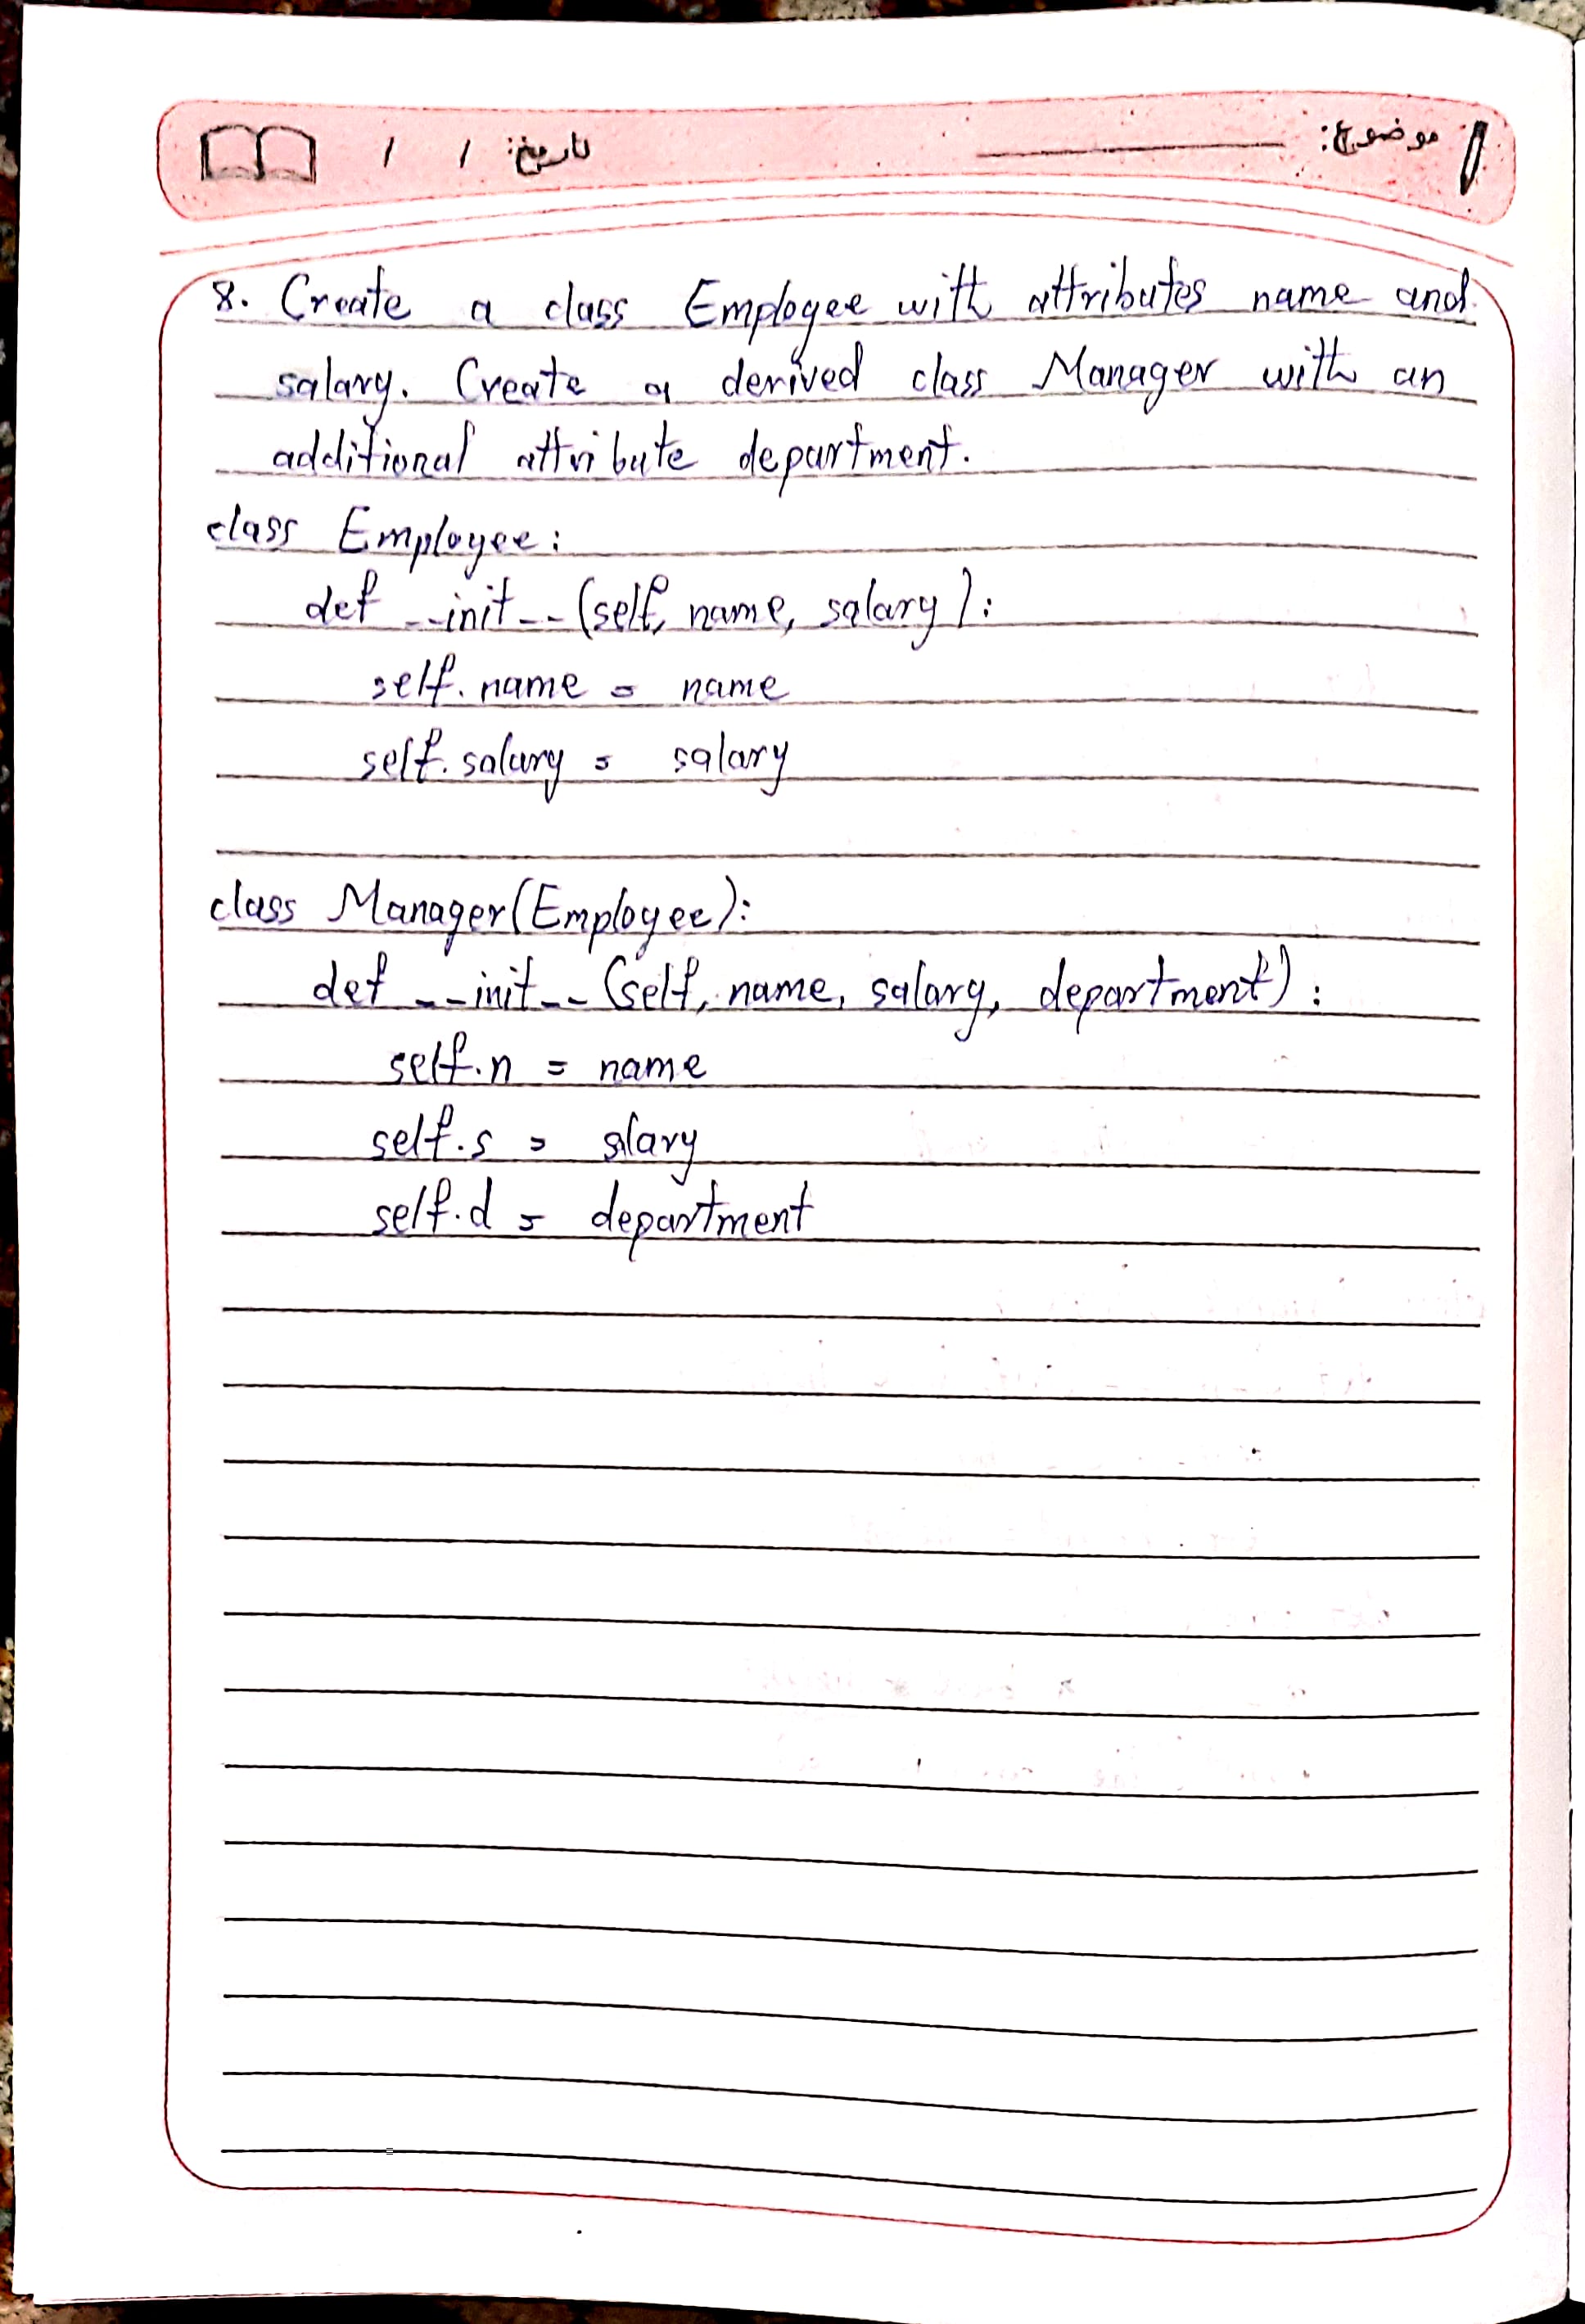 موضوع:
تاریخ: / /
8. Create a class Employee with attributes name and
salary. Create a derived class Manager with an
additional attribute department.
class Employee:
def __init__(self, name, salary):
self.name = name
self.salary = salary
class Manager(Employee):
def __init__(self, name, salary, department):
self.n = name
self.s = slary
self.d = department